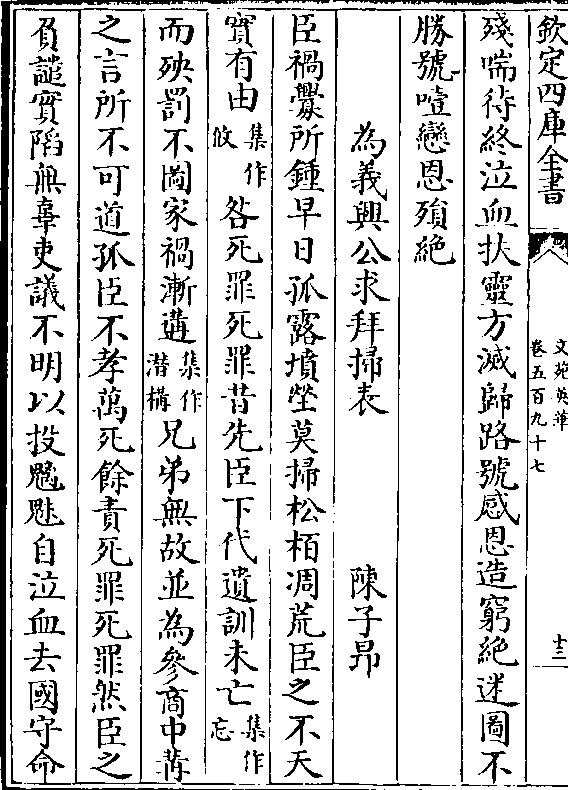 欽定四庫全書
文苑英華
卷五百九十七
十二
殘喘待終泣血扶靈方滅歸路號感恩造窮絶迷圖不
勝號噎戀恩殞絶
為義興公求拜掃表 陳子昂
臣禍釁所鍾早日孤露墳塋莫掃松栢凋荒臣之不天
實有由集作攸咎死罪死罪昔先臣下代遺訓未亡集作忘
而殃罰不圖家禍漸遘集作潜構兄弟無故並為參商中冓
之言所不可道孤臣不孝萬死餘責死罪死罪然臣之
負譴實䧟無辜吏議不明以投魑魅自泣血去國守命